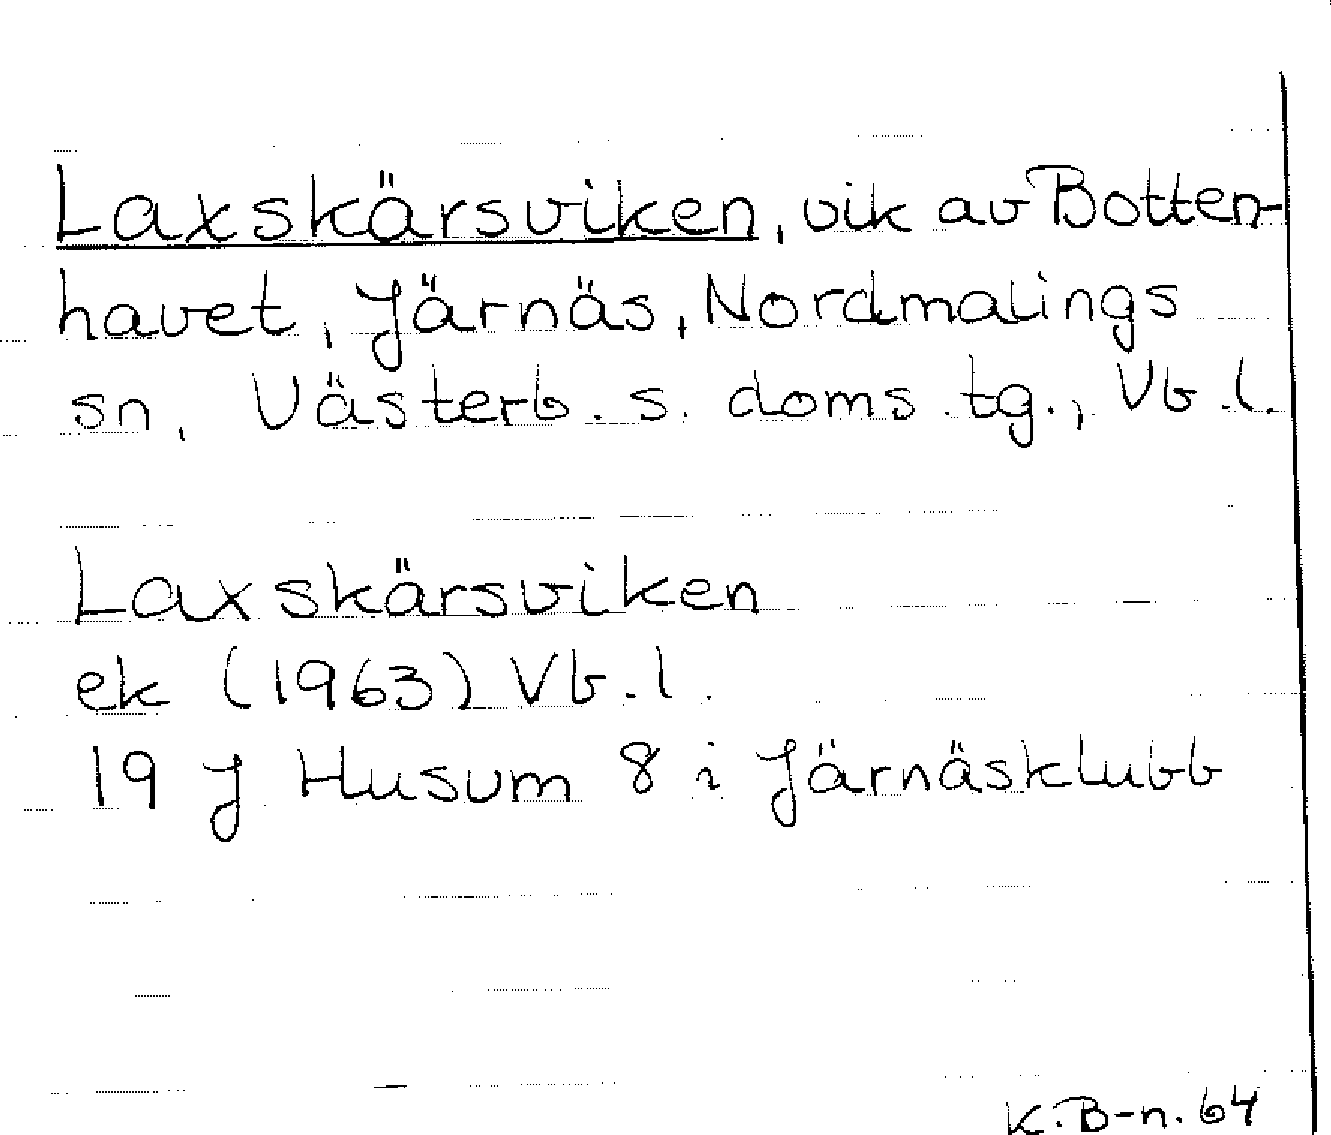 Laxskärsviken, vik av Botten-
havet, Järnäs, Nordmalings
sn, Västerb. s. doms. tg., Vb. l.
Laxskärsviken
ek (1963) Vb. l.
19 J Husum 8 i Järnäsklubb
K. B-n. 64